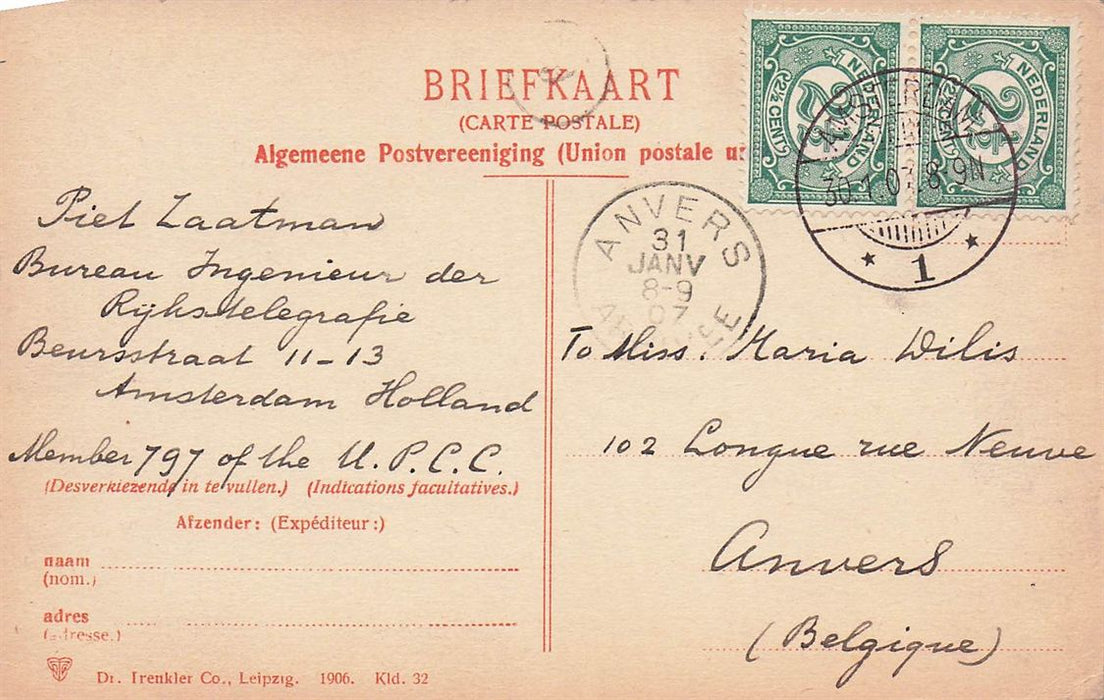 BRIEFKAART
(CARTE POSTALE)
Algemeene Postvereeniging (Union postale
NEDERLAND
2½ CENT
NEDERLAND
2½ CENT
AMSTERDAM
30.1.07. 8-9N
1
ANVERS
31
JANV
8-9
07
Piet Zaatman
Bureau Ingenieur der
Rijkstelegrafie
Beursstraat 11-13
Amsterdam Holland
Member 797 of the U.P.C.C.
(Desverkiezende in te vullen.) (Indications facultatives.)
Afzender: (Expéditeur:)
naam
(nom.)
adres
(adresse.)
Dr. Trenkler Co., Leipzig. 1906. Kld. 32
To Miss. Maria Wilis
102 Longue rue Neuve
Anvers
(Belgique)